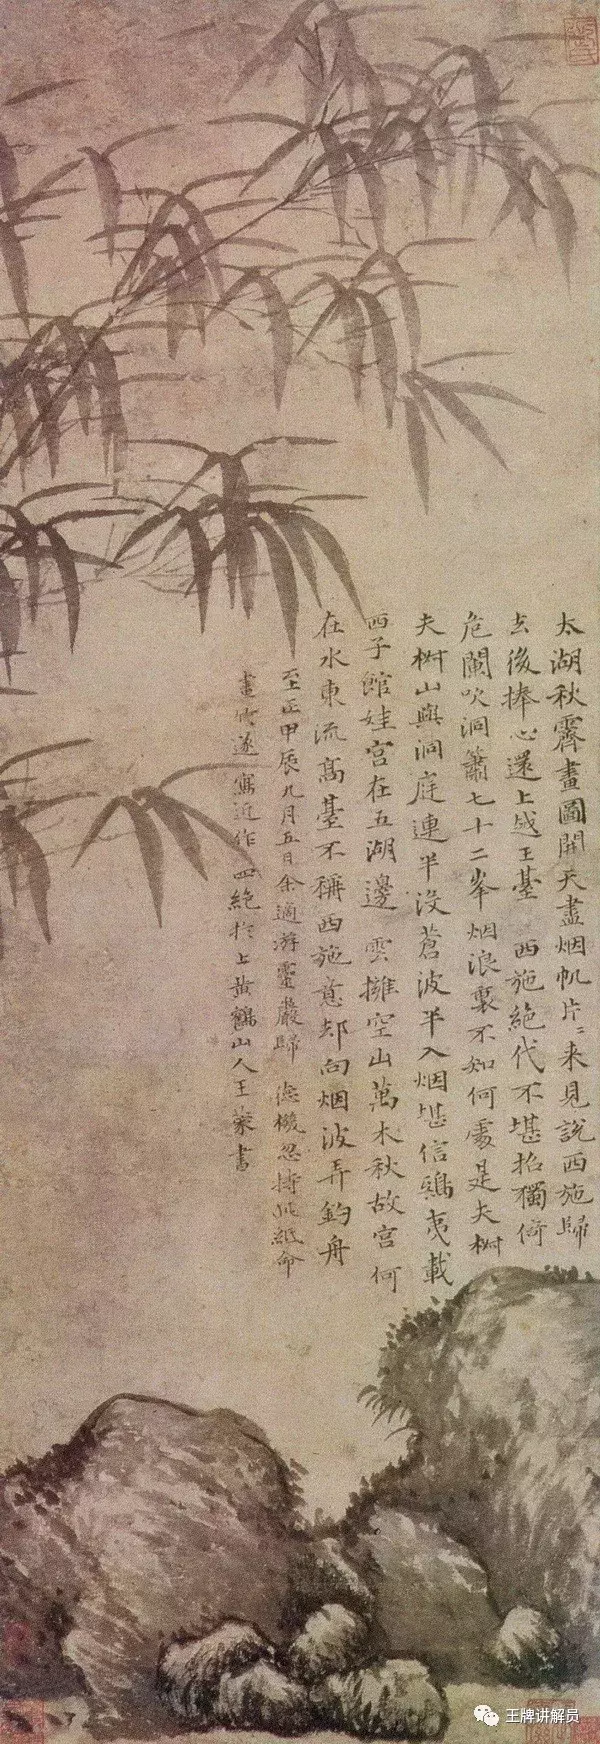 太湖秋霽畫圖開天盡烟帆片〻来見說西施歸
去後捧心還上越王臺 西施絶代不堪招獨倚
危闌吹洞簫七十二峯烟浪裏不知何處是夫椒
夫椒山與洞庭連半没蒼波半入烟堪信鴟夷載
西子館娃宫在五湖邊 雲擁空山萬木秋故宫何
在水東流髙臺不稱西施意却向烟波弄釣舟
至正甲辰九月五日余適游靈巖歸 德機忽持此紙命
畫竹遂寫近作四絶於上黄鶴山人王蒙書
王牌讲解员